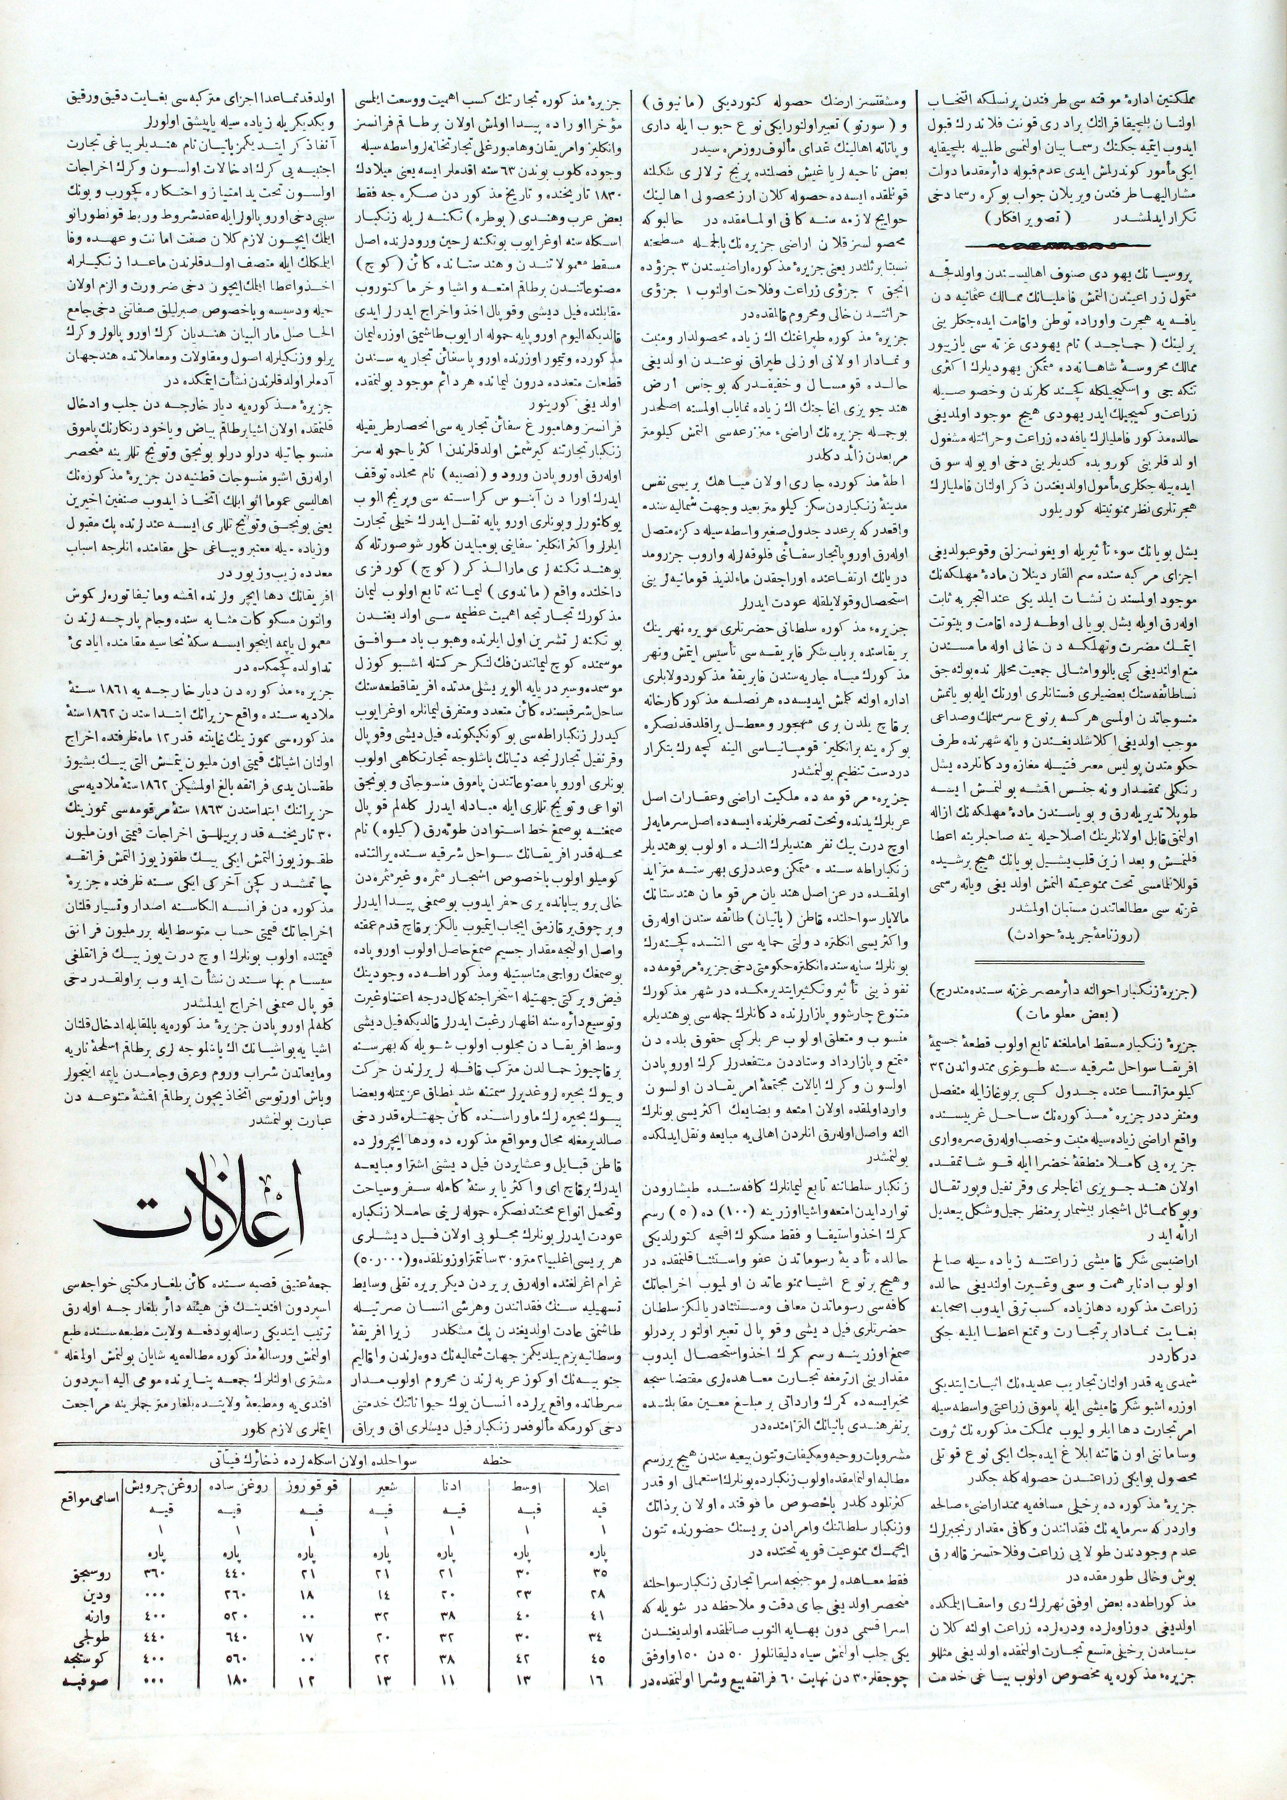 مملكتين ادارۀ موقته سی طرفندن پرنسلكه انتخاب
اولنان بلجیقا قرالنك برادری قونت فلاندرك قبول
ایدوب ایتمیه جكنك رسما بیان اولنمسی طلبیله بلجیقایه
ایكی مأمور كوندرلش ایدی عدم قبوله دائر مقدما دولت
مشار الیها طرفندن ویریلان جواب بوكره رسما دخی
تكرار ایدلمشدر ( تصویر افكار )
پروسیانك یهودی صنوف اهالیسندن واولدقجه
متمول زراعیندن التمش فامیلیانك ممالك عثمانیه دن
یافه یه هجرت واوراده توطن واقامت ایده جكلرینی
برلینك ( حماجد ) نام یهودی غزته سی یازیور
ممالك محروسۀ شاهانه ده متمكن یهودیلرك اكثری
تنكه جی و اسكیجیلكله كچنند كلرندن وخصوصیله
زراعت و كمیجیلك ایدر یهودی هیچ موجود اولدیغی
حالده مذكور فامیلیارك یافه ده زراعت وحراثتله مشغول
اولدقلرینی كوروبده كندیلرینی دخی او یوله سوق
ایده بیله جكلری مأمول اولدیغندن ذكر اولنان فامیلیارك
هجرتلری نظر ممنونیتله كوریلور
یشل بویانك سوء تأثیریله اویغونسزلق وقوعبولدیغی
اجزای مركبه سنده سم الفار دینلان مادۀ مهلكه نك
موجود اولمسندن نشات ایلدیكی عند التجربه ثابت
اوله رق اویله یشل بویالی اوطه لرده اقامت و بیتوتت
ایتمك مضرت وتهلكه دن خالی اوله مامسندن
منع اولندیغی كبی بالو وامثالی جمعیت محللرنده بولنه جق
نسا طائفه سنك بعضیلری فستانلری اورنك ایله بویانمش
منسوجاتدن اولمسی هركسه بر نوع سرسملك وصداعی
موجب اولدیغی اكلاشلدیغندن ویانه شهرنده طرف
حكومتدن پولیس معرفتیله مغازه ودكانلرده یشل
رنكلی نمقدار ونه جنس اقشه بولنمش ایسه
طوپلاتدیریله رق و بویاسندن مادۀ مهلكه نك ازاله
اولنمق قابل اولانلرینك اصلاحیله ینه صاحبلرینه اعطا
قلنمش و بعد ازین قلب یشیل بویانك هیچ برشیده
قوللانلمامسی تحت ممنوعیته التمش اولدیغی ویانه رسمی
غزته سی مطالعاتندن مستبان اولمشدر
(روزنامۀ جریدۀ حوادث)
(جزیرۀ زنكبار احوالنه دائر مصر غزته سنده مندرج)
( بعض معلومات )
جزیرۀ زنكبار مسقط امامنلغنه تابع اولوب قطعۀ جسیمۀ
افریقا سواحل شرقیه سنه طوغری ممتد واندن ٣٢
كیلومترا قسا عنده جدول كبی بر بوغاز ایله منفصل
ومنفرد در جزیرۀ مذكوره نك ساحل غربیسنده
واقع اراضی زیاده سیله منبت وخصب اوله رق صره واری
جزیره یی كاملا منطقۀ خضرا ایله قوشاتمقده
اولان هند جویزی اغاجلری و قرنفیل و پورتقال
وبوكا مماثل اشجار بیشمار بر منظر جمیل وشكل بیعدیل
ارائه ایدر
اراضیسی شكر قامیشی زراعتنه زیاده سیله صالح
اولوب ادنا بر همت وسعی وغیرت اولندیغی حالده
زراعت مذكوره دها زیاده كسب ترقی ایدوب اصحابنه
بغایت نمادار بر تجارت وتمتع اعطا ایلیه جكی
دركاردر
شمدی یه قدر اولنان تجاریب عدیده نك اثبات ایتدیكی
اوزره اشبو شكر قامیشی ایله پاموق زراعتی واسطه سیله
امر تجارت دها ایلرولیوب مملكت مذكوره نك ثروت
وسامانی اون قاتنه ابلاغ ایده جك ایكی نوع قوتلی
محصول بو ایكی زراعتدن حصوله كله جكدر
جزیرۀ مذكوره ده بر خیلی مسافه یه ممتد اراضیء صالحه
واردر كه سرمایه نك فقداتندن وكافی مقدار رنجبرلرك
عدم وجودندن طولایی زراعت وفلاحتسز قاله رق
بوش وخالی طورمقده در
مذكور اطه ده بعض اوفق نهرلركری واسقا ایلمكده
اولدیغی دوز اوه لرده ودره لرده زراعت اولنه كلان
سیسامدن برخیلی متسع تجارت اولنمقده اولدیغی مثللو
جزیرهء مذكوره یه مخصوص اولوب بیاغی خدمت
ومشقتسز ارضك حصوله كتوردیكی ( مانیوق )
و ( سورنو ) تعبیر اولنور ایكی نوع حبوب ایله داری
و پاتاته اهالینك غدای مألوف روزمره سیدر
بعض ناحیه لر یاغیش فصلنده پرنج ترلالری شكلنه
قونلقده ایسه ده حصوله كلان ارز محصولی اهالینك
حوایج لازمه سنه كافی اولمامقده در حالبوكه
محصولسز قلان اراضی جزیره نك بالجمله مسطحنه
نسبتا بر ثلثدر یعنی جزیرۀ مذكوره اراضیسندن ٣ جزؤده
انجق ٢ جزؤی زراعت وفلاحت اولنوب ١ جزؤی
حراثتدن خالی ومحروم قالمقده در
جزیرۀ مذكوره طپراغنك اك زیاده محصولدار ومنبت
ونمادار اولانی اوزلی طپراق نوعندن اولدیغی
حالده قومسال وخفیفدر كه بو جنس ارض
هند جویزی اغاجنك اك زیاده نمایاب اولمسنه اصلحدر
بو جمله جزیره نك اراضیء مزرعه سی التمش كیلومتر
مربعدن زائد دكلدر
اطۀ مذكورده جاری اولان میاهك بریسی نفس
مدینۀ زنكباردن سكز كیلومتر بعید وجهت شمالیه سنده
واقعدر كه بر عدد جدول صغیر واسطه سیله دكزه متصل
اوله رق اوروپا تجار سفائنی فلوقه لرله واروب جزرومد
دریانك ارتفاعنده اوراجقدن ماء لذیذ قومانیه لرینی
استحصال وقولایلقله عودت ایدرلر
جزیرهء مذكوره سلطانی حضرتلری مویره نهرینك
بر یقاسنده برباب شكر فابریقه سی تأسیس ایتمش ونهر
مذكورك میاه جاریه سندن فابریقۀ مذكور دولابلری
اداره اولنه كلمش ایدیسه ده هر نصلسه مذكور كارخانه
برقاچ یلدن بری مهجور ومعطل براقلدقدنصكره
بوكره ینه بر انكلیز قومپانیاسی الینه كچه رك بتكرار
دردست تنظیم بولنمشدر
جزیرهء مرقومه ده ملكیت اراضی وعقارات اصل
عربلرك یدنده وتحت تصرفلرنده ایسه ده اصل سرمایه لر
اوچ درت بیك نفر هندیلرك النده اولوب بو هندیلر
زنكبار اطه سنده متمكن وعددلری بهر سنه متزاید
اولمقده در عن اصل هندیان مرقومان هندستانك
مالابار سواحلنده قاطن ( بانیان ) طائفه سندن اوله رق
واكثریسی انكلتره دولتی حمایه سی التنده كچنه رك
بونلرك سایه سنده انكلتره حكومتی دخی جزیرۀ مرقومه ده
نفوذینی تأثیر وتكثیر ایتدیرمكده در شهر مذكورك
متنوع چارشو و بازارلرنده دكانلرك جمله سی بو هندیلره
منسوب و متعلق اولوب عربلر كبی حقوق بلده دن
متمتع و بازارداد و ستاددن منتفعدرلر كرك اوروپادن
اولسون و كرك ایالات مجتمعۀ امریقادن اولسون
وارد اولمقده اولان امتعه و بضایعك اكثریسی بونلرك
الله واصل اوله رق انلردن اهالی یه مبایعه ونقل ایدلمكده
بولنمشدر
زنكبار سلطاننه تابع لیمانلرك كافه سنده طیشارودن
توارد ایدن امتعه واشیا اوزرینه (١٠٠) ده (٥) رسم
كمرك اخذ واستیفا و فقط مسكوك اقچه كتورلدیكی
حالده تأدیۀ رسوماتدن عفو واستثنا قلنمقده در
وهیچ بر نوع اشیا ممنوعاتدن اولمیوب اخراجاتك
كافه سی رسوماتدن معاف و مستثنا در یالكز سلطان
حضرتلری فیل دیشی و قوپال تعبیر اولنور بردرلو
صمغ اوزرینه رسم كمرك اخذ واستحصال ایدوب
مقدارینی ارتیرمغه تجارت معاهده لری مقتضا سنجه
مخیر ایسه ده كمرك وارداتی بر مبلغ معین مقابلنده
برنفر هندی بانیانك التزامنده در
مشروبات روحیه ومكیفات و تتون بیعیه سندن هیچ بررسم
مطالبه اولنمامقده اولوب زنكبارده بونلرك استعمالی اوقدر
كثرتلو دكلدر یاخصوص مافوقنده اولان برذاتك
وزنكبار سلطاننك وامرادن بریسنك حضورنده تتون
ایچمك ممنوعیت قویه تحتنده در
فقط معاهده لر موجبنجه اسرا تجارتی زنكبار سواحلنه
منحصر اولدیغی جای دقت و ملاحظه در شویله كه
اسرا قسمی دون بهایه النوب صاتلمقده اولدیغندن
یكی جلب اولنمش سیاه دلیقانلولر ٥٠ دن ١٥٠ و اوفق
چوجقلر ٣٠ دن نهایت ٦٠ فرانقه بیع وشرا اولنمقده در
جزیرۀ مذكوره تجارتنك كسب اهمیت ووسعت ایلمسی
مؤخرا اوراده پیدا اولمش اولان برطاقم فرانسز
وانكلیز وامریقان وهامبورغلی تجارتخانه لر واسطه سیله
وجوده كلوب بوندن ٦٣ سنه اقدملر ایسه یعنی میلادك
١٨٣٠ تاریخنده و تاریخ مذكوردن صكره جه فقط
بعض عرب وهندی ( بوطره ) تكنه لریله زنكبار
اسكله سنه اوغرایوب بو تكنه لر حین ورودلرنده اصل
مسقط معمولاتندن و هندستانده كائن ( كوچ )
مصنوعاتندن برطاقم امتعه و اشیا و خرما كتوروب
مقابلنده فیل دیشی و قوپال اخذ واخراج ایدرلر ایدی
قالدیكه الیوم اوروپایه حموله لر ایوب طاشیمق اوزره لیمان
مذكورده و تیمور اوزرنده اوروپا سفائن تجاریه سندن
قطعات متعدده درون لیمانده هر دائم موجود بولنمقده
اولدیغی كورینور
فرانسز وهامبورغ سفائن تجاریه سی انحصار طریقیله
زنكبار تجارتنه كیرشمش اولدقلرندن اكثریا حموله سز
اوله رق اوروپادن ورود و (نصیبه) نام محلده توقف
ایدرك اورادن آبنوس كراسته سی و پرنج الوب
یوكلنورلر و بونلری اوروپایه نقل ایدرك خیلی تجارت
ایلرلر واكثر انكلیز سفائنی بومبایدن كلور شو صورتله كه
بو هند تكنه لری مار الذكر ( كوچ ) كورفزی
داخلنده واقع ( ماندوی ) لیماننه تابع اولوب لیمان
مذكورك تجارتجه اهمیت عظیمه سی اولدیغندن
بو تكنه لر تشرین اول ایلرنده وهبوب باد موافق
موسمنده كوچ لیمانندن فك لنكر حركتله اشبو كوزل
موسمده وسیر دریایه الویریشلی مدتده افریقا قطعه سنك
ساحل شرقیسنده كائن متعدد و متفرق لیمانلره اوغرایوب
كیدرلر زنكبار اطه سی بو كونكی كونده فیل دیشی وقوپال
وقرنفیل تجارلرنجه دنیانك باشلوجه تجارتكاهی اولوب
بونلری اوروپا مصنوعاتندن پاموق منسوجاتی و بونجق
انواعی و تونج تللری ایله مبادله ایدرلر كله لم قوپال
صمغنه بو صمغ خط استوادن طوته رق (كیلوه) نام
محله قدر افریقانك سواحل شرقیه سنده یر التنده
كومیلو اولوب یاخصوص اشجار مثمره و غیر مثمره دن
خالی بر و بیابانده یری حفر ایدوب بو صمغی پیدا ایدرلر
و برچوق یر قازمق ایجاب ایتمیوب یالكز بر قاچ قدم عمقنه
واصل اولنجه مقدار جسیم صمغ حاصل اولوب اوروپاده
بو صمغك رواجی مناسبتیله ومذكور اطه ده وجودینك
فیض وبركتی جهتیله استخراجنه كمال درجه اعتنا وغیرت
وتوسیع دائره سنه اظهار رغبت ایدرلر قالدیكه فیل دیشی
وسط افریقادن مجلوب اولوب شویله كه بهر سنه
برقاچیوز حمالدن مركب قافله لر یرلرندن حركت
و بیوك بحیره لره وغدیرلر سمتنه شد نطاق عزیمتله وبعضا
بیوك بحیره لرك ماوراسنده كائن جهتلره قدر دخی
صالدیرمغله محال ومواقع مذكوره ده ودها ایچرولرده
قاطن قبایل و عشایردن فیل دیشنی اشترا و مبایعه
ایدرك برقاچ ای واكثریا برسنۀ كامله سفر وسیاحت
وتحمل انواع محنتد نصكره حموله لرینی حاملا زنكباره
عودت ایدرلر بونلرك مجلوبی اولان فیل دیشلری
هر بریسی اغلبیا ٢ مترو ٣٠ سانتمتر اوزونلقده و(٥٠٠٠٠)
غرام اغرلغنده اوله رق بریردن دیكر بریره نقلی وسایط
تسهیلیه سنك فقدانندن وهرشی انسان صرتیله
طاشنمق عادت اولدیغندن پك مشكلدر زیرا افریقۀ
وسطانیه بزم بیلدیكمز جهات شمالیه نك دوه لرندن واقالیم
جنوبیه نك اوكوز عربه لرندن محروم اولوب مدار
سرطانده واقع یرلرده انسان یوك حیواناتنك خدمتنی
دخی كورمكه مألوفدر زنكبار فیل دیشلری اق و براق
اولدقد نماعدا اجزای متركبه سی بغایت دقیق ورقیق
و یكدیكریله زیاده سیله یاپیشق اولورلر
آنفا ذكر ایتدیكمز بانیان نام هندیلر بیاغی تجارت
اجنبیه یی كرك ادخالات اولسون و كرك اخراجات
اولسون تحت ید امتیاز و احتكاره كچورب و بونك
سببی دخی اوروپالولر ایله عقد شروط و ربط قونطوراتو
ایلمك ایچون لازم كلان صفت امانت و عهده وفا
ایلمكلك ایله متصف اولدقلرندن ماعدا زنكبارله
اخذ واعطا ایلمك ایچون دخی ضرورت و الزم اولان
حیله ودسیسه و یاخصوص صبرلیلق صفاتنی دخی جامع
الحاصل مار البیان هندیان كرك اوروپالولر و كرك
یرلو و زنكیلرله اصول و مقاولات و معاملاتده هند جهان
آدملر اولدقلرندن نشأت ایتمكده در
جزیرۀ مذكوره یه دیار خارجه دن جلب و ادخال
قلنمقده اولان اشیا برطاقم بیاض و یاخود رنكارنك پاموق
منسوجاتیله درلو درلو بونجق وتونج تللرینه منحصر
اوله رق اشبو منسوجات قطنیه دن جزیرۀ مذكوره نك
اهالیسی عموما اثوابلك اتخاذ ایدوب صنفین اخیرین
یعنی بونجق وتونج تللری ایسه عندلرنده پك مقبول
وزیاده سیله معتبر و بیاغی حلی مقامنده انلرجه اسباب
معدده زیب و زیوردر
افریقانك دها ایچرولرنده اقشه و مانیفاتوره لر كوش
والتون مسكوكات مثابه سنده وجام پارچه لرندن
معمول یاپمه اینجو ایسه سكۀ نحاسیه مقامنده ایادیٔ
تداولده كچمكده در
جزیرهء مذكوره دن دیار خارجه یه ١٨٦١ سنۀ
میلادیه سنده واقع حزیرانك ابتداسندن ١٨٦٢ سنۀ
مذكوره سی تموزینك غایتنه قدر ١٢ ماه ظرفنده اخراج
اولنان اشیانك قیمتی اون ملیون یتمش التی بیك بشیوز
طقسان یدی فرانقه بالغ اولمشیكن ١٨٦٢ سنۀ میلادیه سی
حزیرانك ابتداسندن ١٨٦٣ سنۀ مرقومه سی تموزینك
٣٠ تاریخنه قدر بریللق اخراجات قیمتی اون ملیون
طقوزیوز التمش ایكی بیك طقوزیوز التمش فرانقه
چاتمشدر كچن آخركی ایكی سنه ظرفنده جزیرۀ
مذكوره دن فرانسه الكاسنه اصدار وتسیار قلنان
اخراجاتك قیمتی حساب متوسط ایله برر ملیون فرانق
قیمتنده اولوب بونلرك اوچ درت یوز بیك فرانقلغی
سیسام بهاسندن نشأت ایدوب براولقدر دخی
قوپال صمغی اخراج ایدلمشدر
كله لم اوروپادن جزیرۀ مذكوره یه بالمقابله ادخال قلنان
اشیایه بو اشیانك اك باشلوجه لری برطاقم اسلحۀ ناریه
ومایعاتدن شراب وروم و عرق وجامدن یاپمه اینجولر
وباش اورتوسی اتخاذ یچون برطاقم اقشۀ متنوعه دن
عبارت بولنمشدر
اعلانات
جمعۀ عتیق قصبه سنده كائن بلغار مكتبی خواجه سی
اسپردون افندینك فن هیئته دائر بلغارجه اوله رق
ترتیب ایتدیكی رساله بو دفعه ولایت مطبعه سنده طبع
اولنمش ورسالۀ مذكوره مطالعه یه شایان بولنمش اولمغله
مشتری اولنلرك جمعه پنایرنده مومی الیه اسپردون
افندی یه ومطبعۀ ولایتده بلغار مترجملرینه مراجعت
ایتملری لازم كلور
حنطه سواحلده اولان اسكله لرده ذخائرك فیئاتی
اعلا اوسط ادنا شعیر قوقوروز روغن ساده روغن چرویش اسامی مواقع
قیه قیه قیه قیه قیه قیه قیه
١ ١ ١ ١ ١ ١ ١
پاره پاره پاره پاره پاره پاره پاره
٣٥ ٣٠ ٢١ ٢١ ٢١ ٤٤٠ ٣٦٠ روسجق
٢٨ ٢٣ ٢٠ ١٤ ١٨ ٢٦٠ ٠٠٠ ودین
٤١ ٤٠ ٣٨ ٣٢ ٠٠ ٥٢٠ ٤٠٠ وارنه
٣٤ ٣٠ ٣٢ ٢٠ ١٧ ٦٤٠ ٤٤٠ طولجی
٤٥ ٤٢ ٣٨ ٢٢ ٠٠ ٥٦٠ ٤٠٠ كوستنجه
١٦ ١٣ ١١ ١٣ ١٢ ١٨٠ ٠٠٠ صوفیه